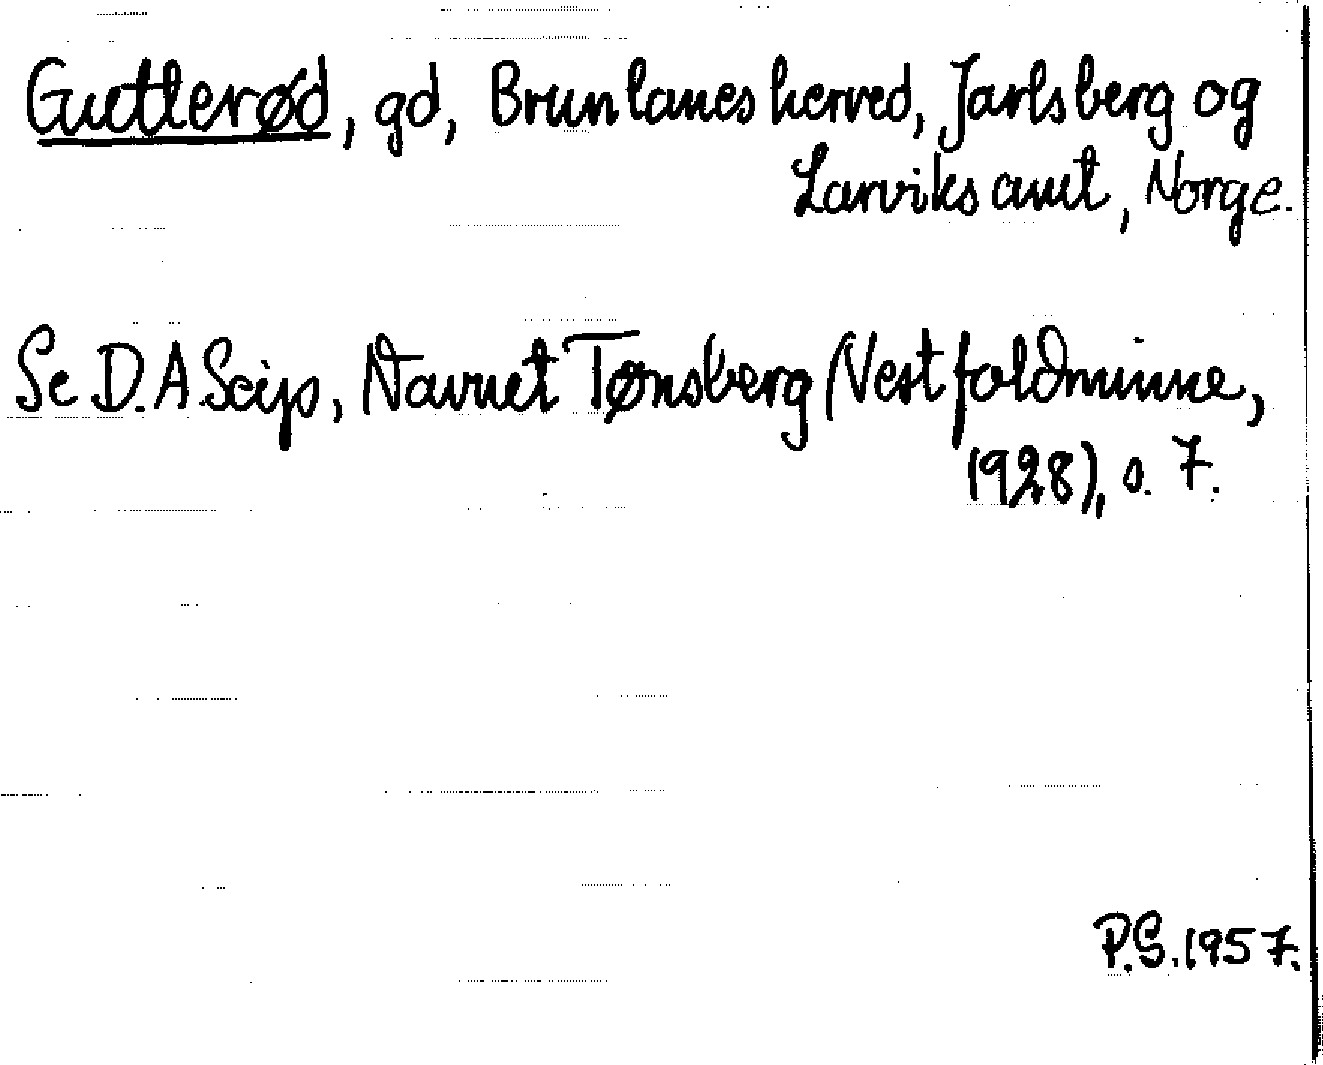 Gutterød, gd, Brunlanes herred, Jarlsberg og
Larviks amt, Norge.
Se D.A. Seip, Navnet Tønsberg (Vestfoldminne,
1928), s. 7.
P.S. 1957.